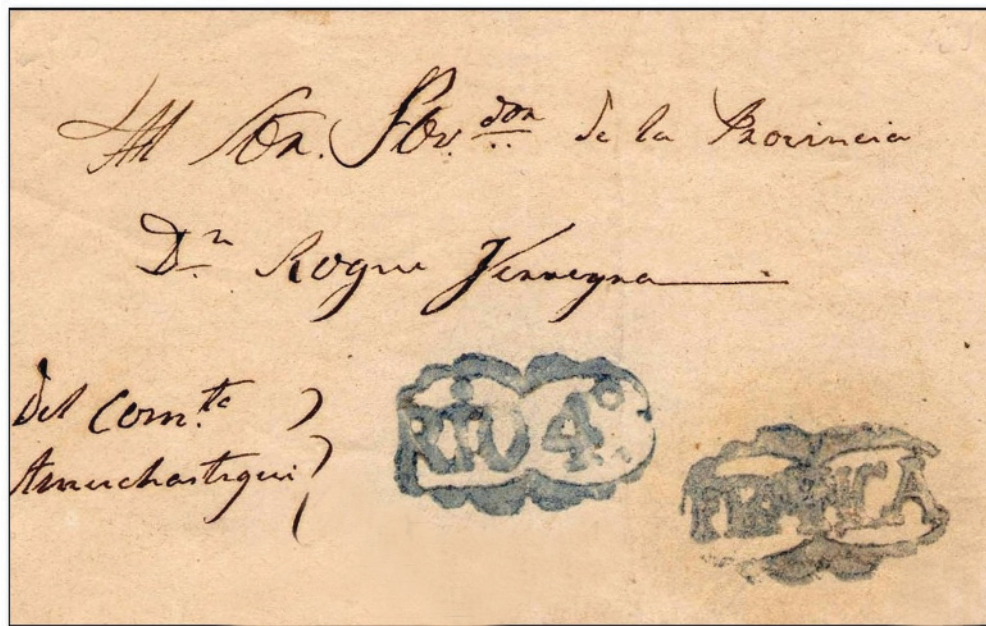 Al Sor. Gov.don de la Provincia
Dn Roque Ferreyra
Del Comte
Amuchastegui
RIO 4º
FRANCA